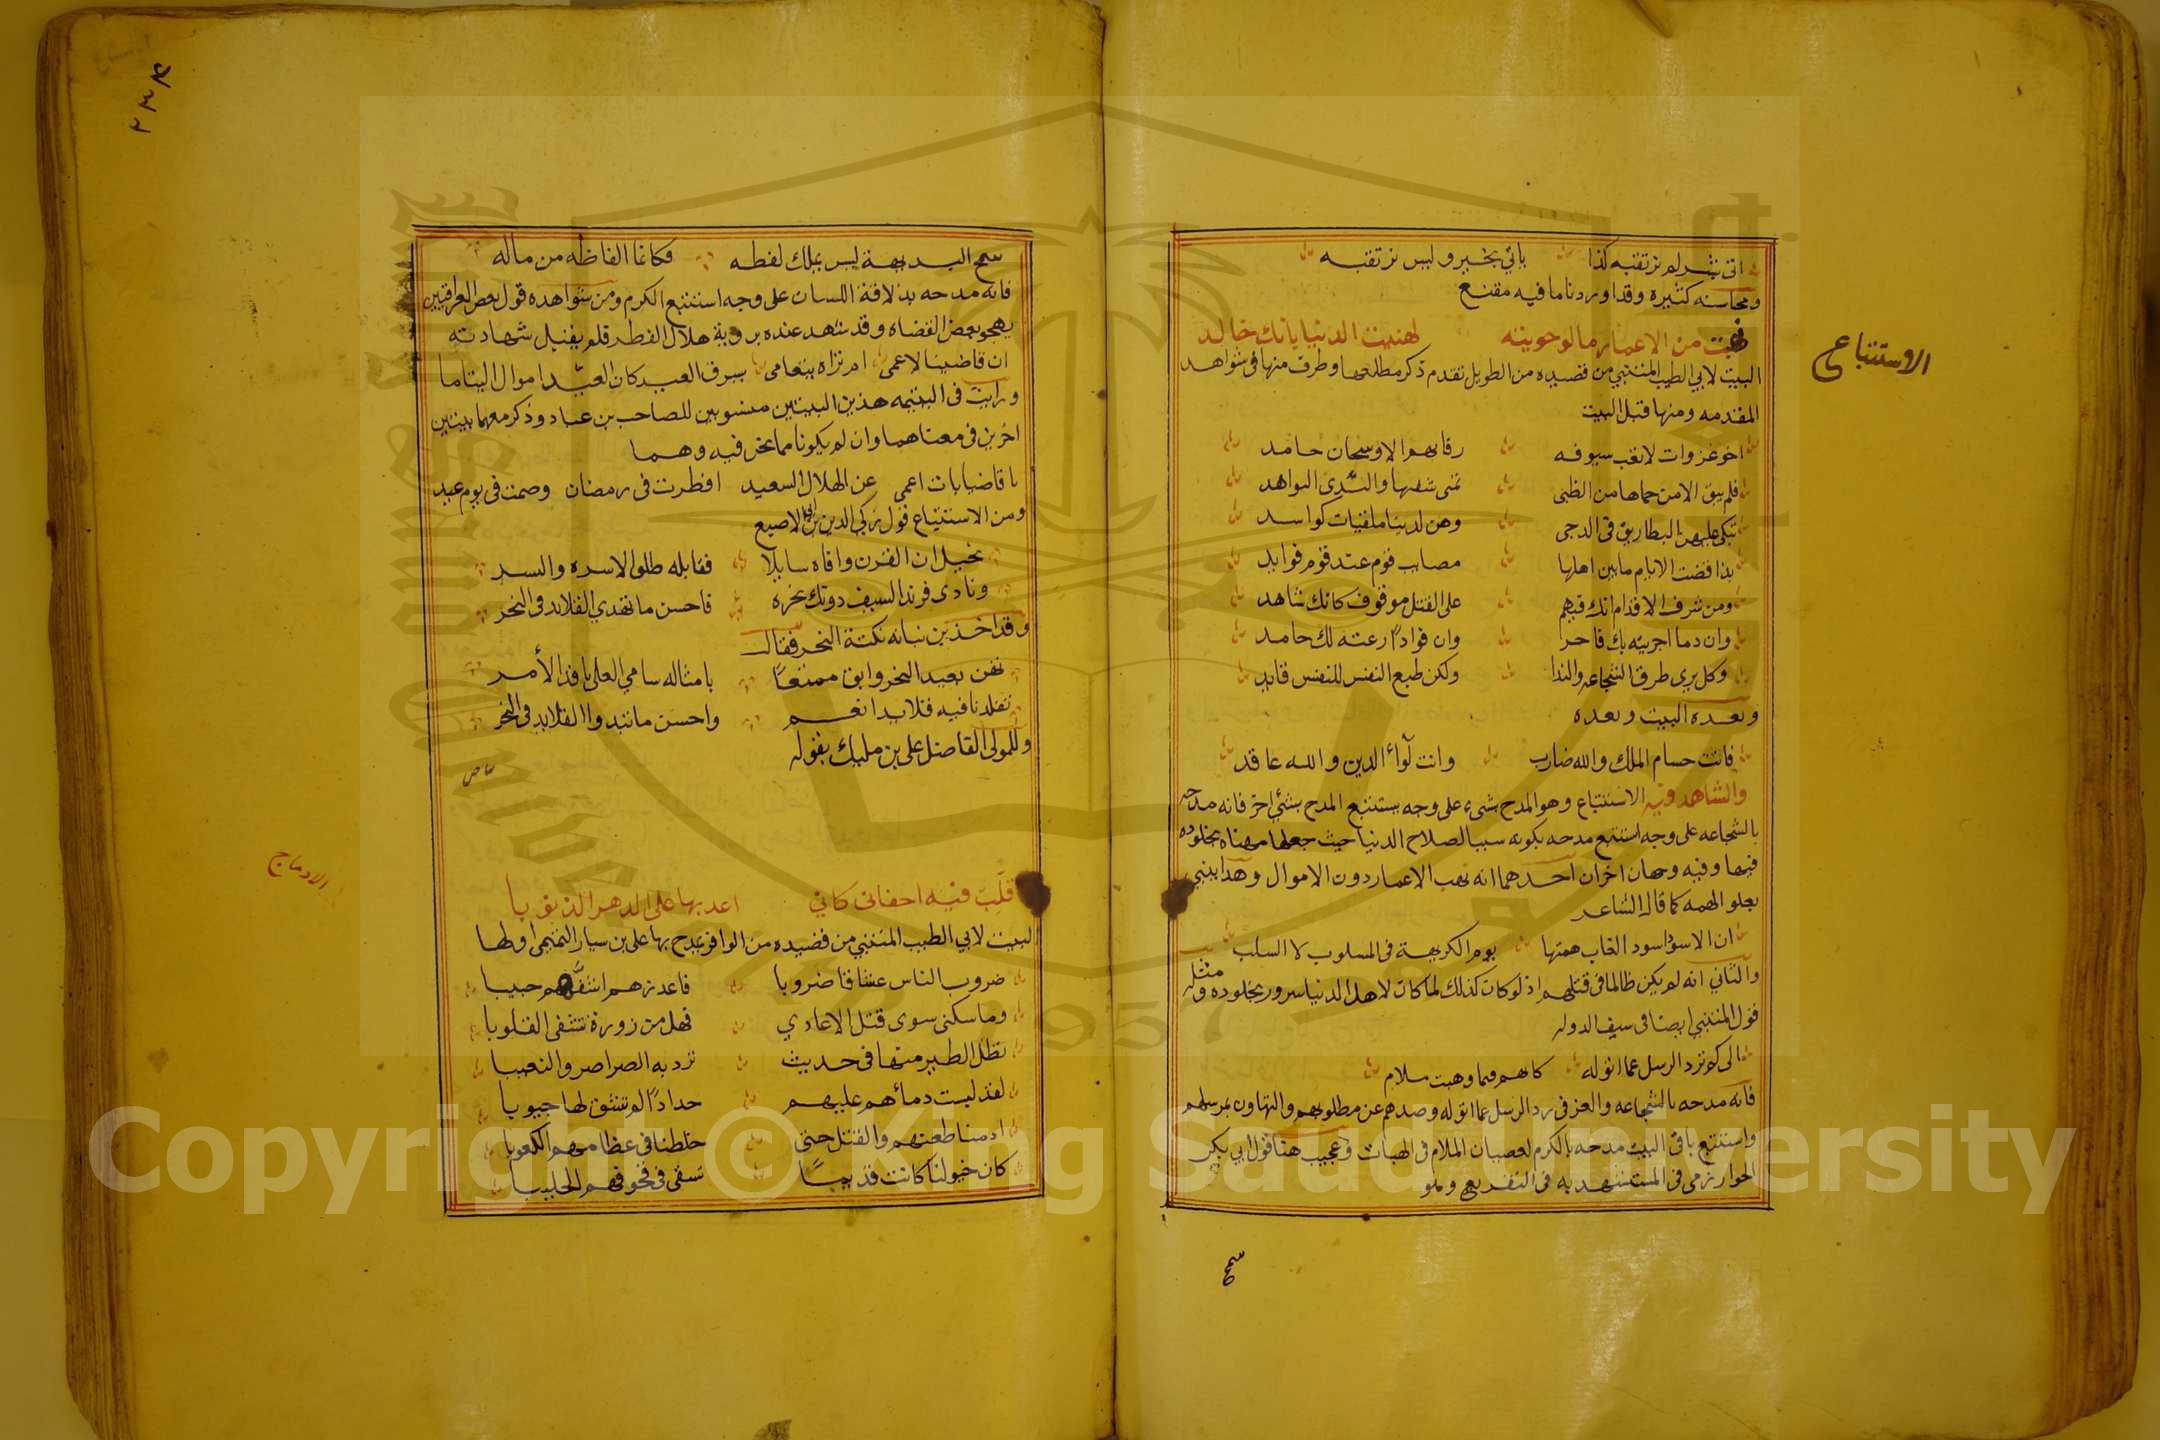 اتى بشر لم نرتقبه كذا ياتي بخير وليس نرتقبه
ومحاسنه كثيرة وقد اوردنا ما فيه مقنع
نهبت من الاعمار ما لو حويته لهنيت الدنيا بانك خالد
الاستتباع
البيت لابي الطيب المتنبي من قصيده من الطويل تقدم ذكر مطلعها وطرف منها في شواهد
المقدمه ومنها قبل البيت
اخو غزوات لا تغب سيوفه رقابهم الا وسيحان جامد
فلم يبق الا من حماها من الظبى لمى شفتيها والثدى النواهد
تبكي عليهن البطاريق في الدجى وهن لدينا ملقيات كواسد
بذا قضت الايام ما بين اهلها مصايب قوم عند قوم فوايد
ومن شرف الاقدام انك فيهم على القتل موقوف كانك شاهد
وان دما اجريته بك فاخر وان فوادا رعته لك حامد
وكل يرى طرق الشجاعه والندا ولكن طبع النفس للنفس قايد
وبعده البيت وبعده
فانت حسام الملك والله ضارب وانت لواء الدين والله عاقد
والشاهد فيه الاستتباع وهو المدح بشيء على وجه يستتبع المدح بشئ اخر فانه مدحه
بالشجاعه على وجه استتبع مدحه بكونه سببا لصلاح الدنيا حيث جعلها مهناه بخلوده
فيها وفيه وجهان اخران احدهما انه نهب الاعمار دون الاموال وهذا ينبي
بعلو الهمه كما قال الشاعر
ان الاسود اسود الغاب همتها يوم الكريهة في المسلوب لا السلب
والثاني انه لم يكن ظالما في قتلهم اذ لو كان كذلك لما كان لاهل الدنيا سرور بخلوده ومثله
قول المتنبي ايضا في سيف الدوله
الى كم ترد الرسل عما اتوا له كانهم فيما وهبت ملام
فانه مدحه بالشجاعه والعز في رد الرسل عما اتوا له وصدهم عن مطلوبهم والتهاون بمرسلهم
واستتبع باقي البيت مدحه بالكرم لعصيان الملام في الهبات وعجيب هنا قول ابي بكر
الخوارزمي في المستشهد به في التفريع وهو
سمح
٢٣٤
سمح البديهة ليس يملك لفظه فكانما الفاظه من ماله
فانه مدحه بذلاقة اللسان على وجه استتبع الكرم ومن شواهده قول بعض العراقيين
يهجو بعض القضاه وقد شهد عنده بروية هلال الفطر فلم يقبل شهادته
ان قاضينا لاعمى ام تراه يتعامى سرق العيد كان العيد اموال اليتاما
ورايت في اليتيمه هذين البيتين منسوبين للصاحب بن عباد وذكر معهما بيتين
اخرين في معناهما وان لم يكونا مما نحن فيه وهما
يا قاضيا بات اعمى عن الهلال السعيد افطرت في رمضان وصمت في يوم عيد
ومن الاستتباع قول زكي الدين بن ابي الاصبع
تخيل ان القرن وافاه سايلا فقابله طلق الاسره والبسر
ونادى فرند السيف دونك نحره فاحسن ما تهدي القلايد في النحر
وقد اخذ بن نباته نكتة النحر فقال
تهن بعيد النحر وابق ممتعا بامثاله سامي العلى نافذ الأمر
تقلدنا فيه قلايد انعم واحسن ما تبدوا القلايد في النحر
وللمولى الفاضل على بن مليك بقوله
بياض
اقلب فيه اجفاني كاني اعد بها على الدهر الذنوبا
الادماج
البيت لابي الطيب المتنبي من قصيده من الوافر يمدح بها على بن سيار التميمي اولها
ضروب الناس عشاقا ضروبا فاعذرهم اشفهم حبيبا
وما سكني سوى قتل الاعادي فهل من زورة تشفى القلوبا
تظل الطير منها في حديث ترد به الصراصر والنعيبا
لقد لبست دمأهم عليهم حدادا لم تشق لها جيوبا
ادمنا طعنهم والقتل حتى خلطنا في عظامهم الكعوبا
كان خيولنا كانت قديما تسقى في قحوفهم الحليبا
Copyright © King Saud University
1957